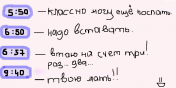 5:50 — классно могу ещё поспать.
6:30 — надо вставать.
6:37 — встаю на счет три!
раз.. два...
9:40 — твою мать!!